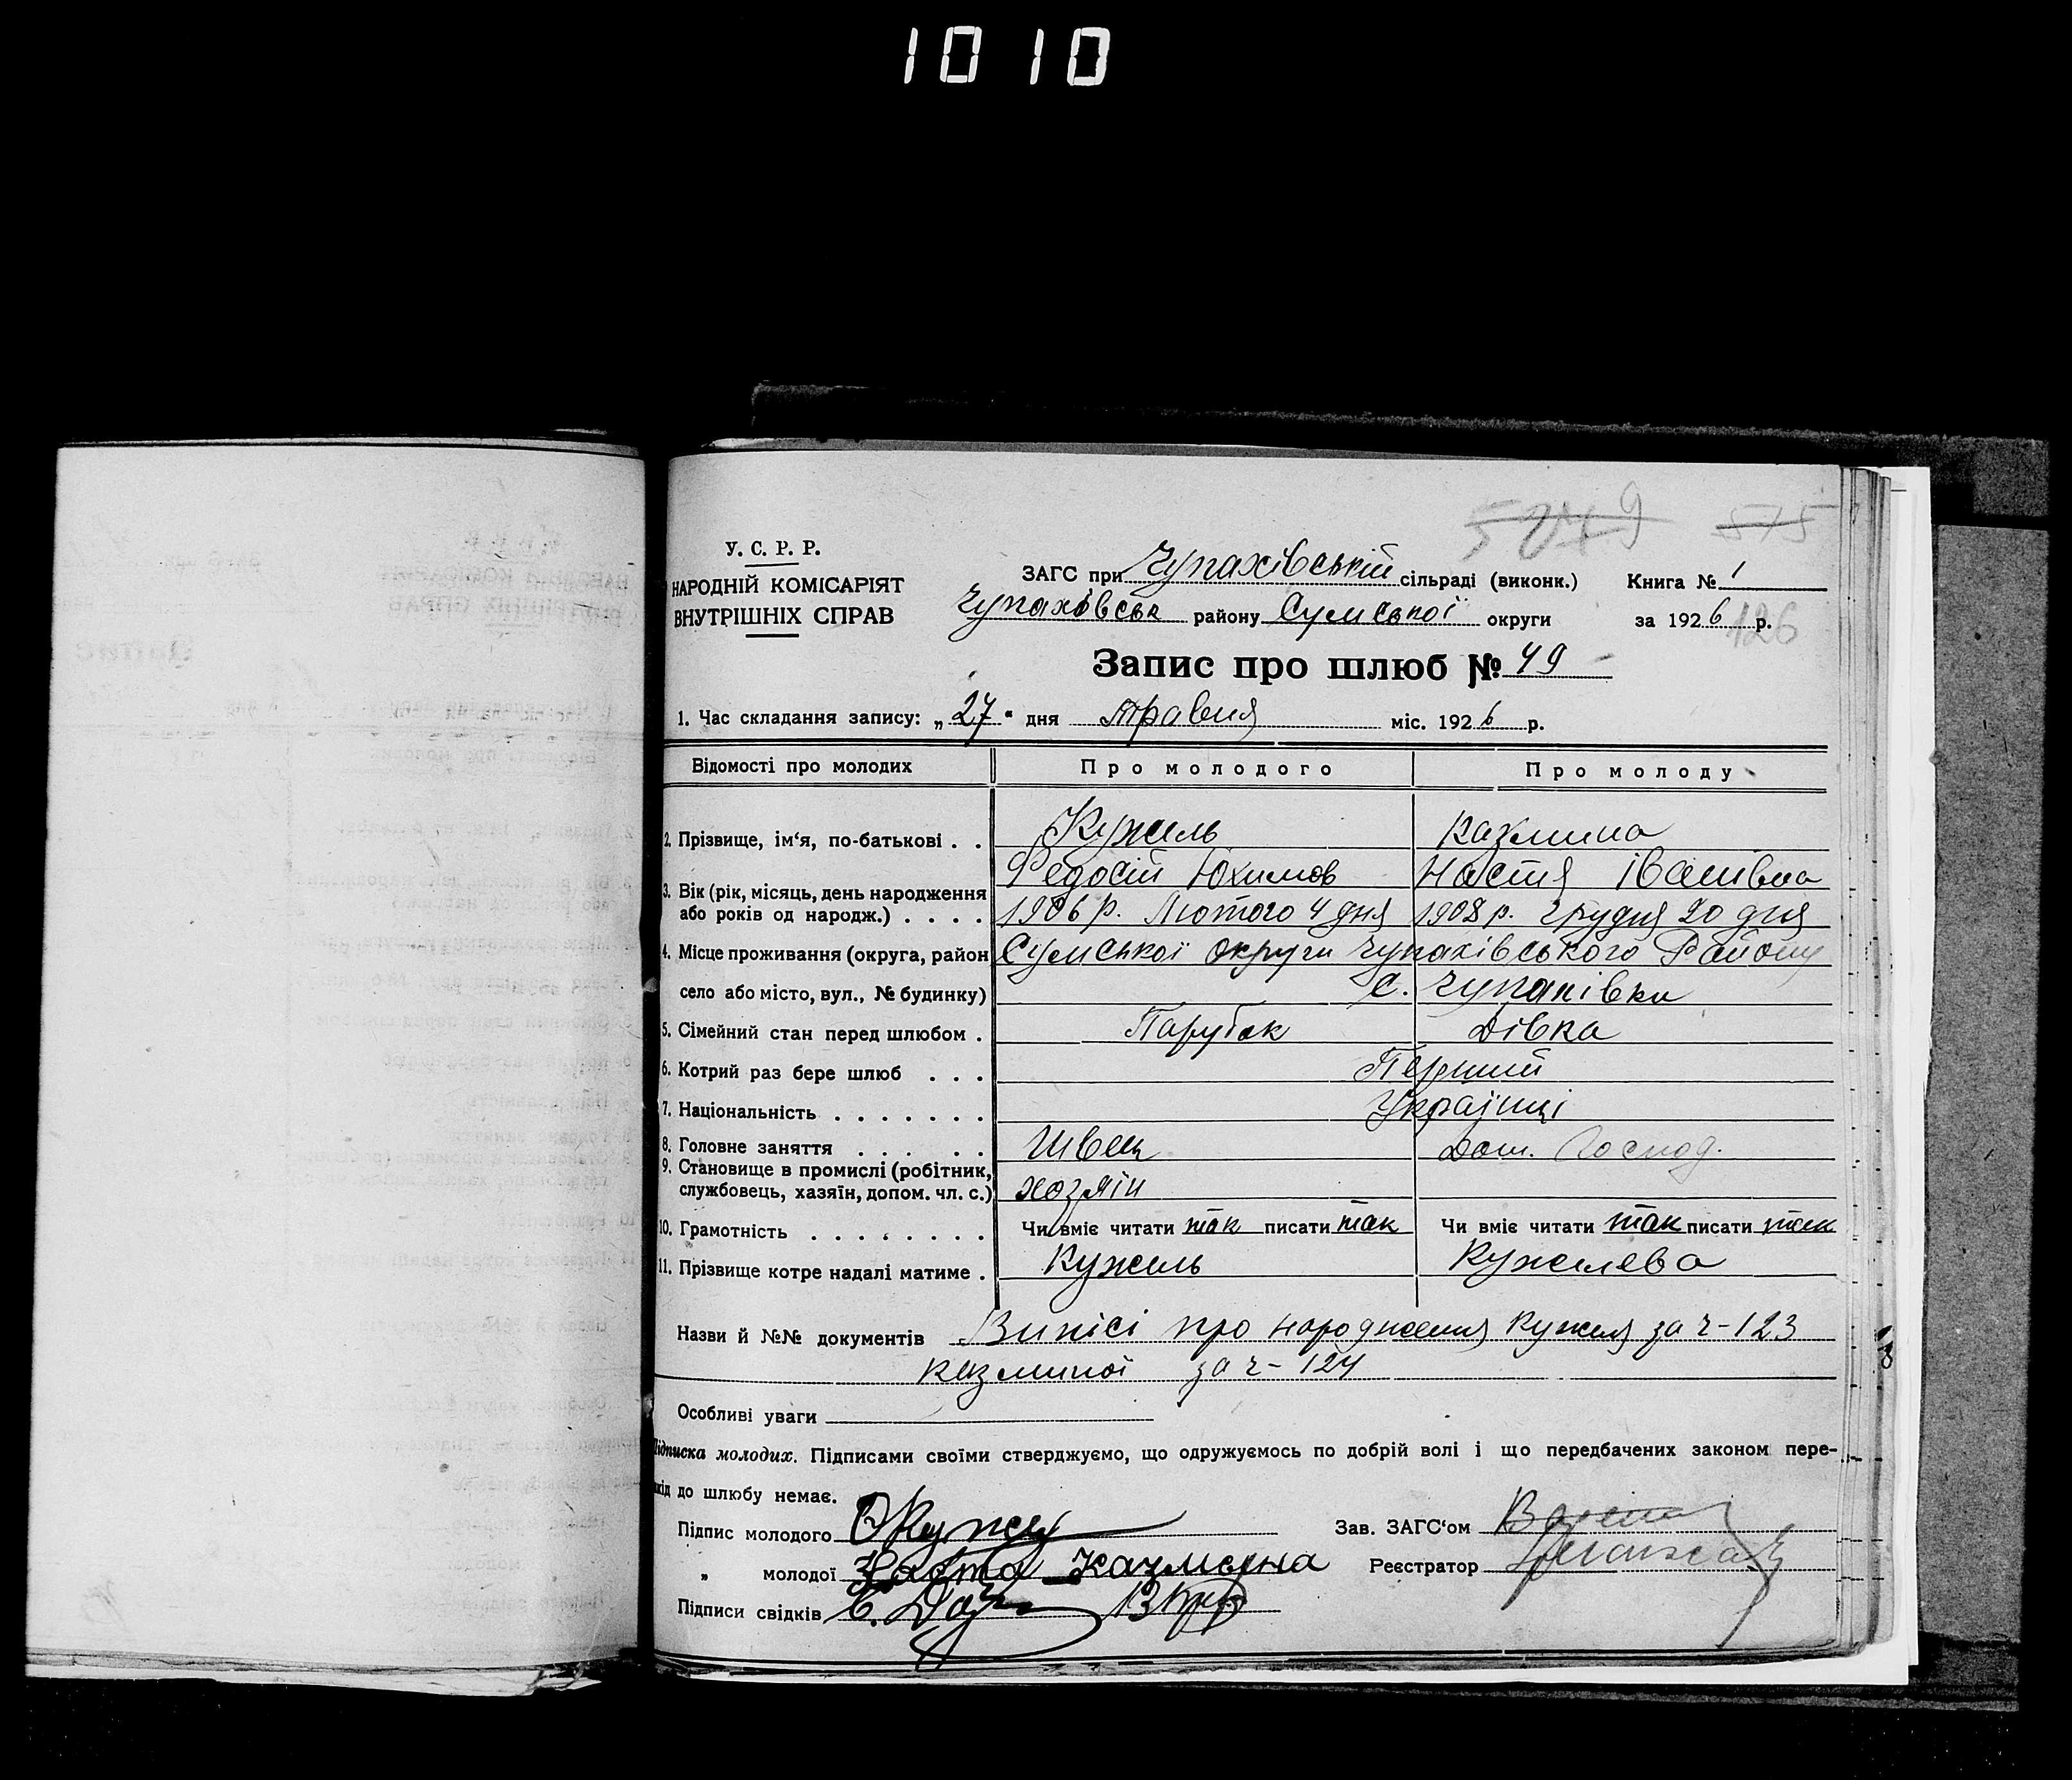 1010
5279 515
У. С. Р. Р.
НАРОДНІЙ КОМІСАРІЯТ
ВНУТРІШНІХ СПРАВ
ЗАГС при Чупахівській сільраді (виконк.) Книга № 1
Чупахівська району Сумської округи за 1926 р.
126
Запис про шлюб № 49
1. Час складання запису: „27“ дня травня міс. 1926 р.
Відомості про молодих Про молодого Про молоду
2. Прізвище, ім‘я, по-батькові . . Кужель Казмина
Федосій Юхимов Настя Іванівна
3. Вік (рік, місяць, день народження
або років од народж.) . . . . 1906 р. Лютого 4 дня 1908 р. Грудня 20 дня
4. Місце проживання (округа, район Сумської округи Чупахівського Району
село або місто, вул., № будинку) С. Чупахівки
5. Сімейний стан перед шлюбом . Парубок Дівка
6. Котрий раз бере шлюб . . . Перший
7. Національність . . . . . . . Українці
8. Головне заняття . . . . . . Швець Дом. Господ.
9. Становище в промислі (робітник,
службовець, хазяїн, допом. чл. с.) хозяін
10. Грамотність . . . . . . . . Чи вміє читати так писати так Чи вміє читати так писати так
11. Прізвище котре надалі матиме . Кужель Кужелева
Назви й №№ документів Виписі про народження Кужеля за ч-123
Казминої за ч-124
Особливі уваги
Підписка молодих. Підписами своїми стверджуємо, що одружуємось по добрій волі і що передбачених законом пере-
кід до шлюбу немає.
Підпис молодого Зав. ЗАГС‘ом
„ молодої Наста Казмена Реєстратор
Підписи свідків